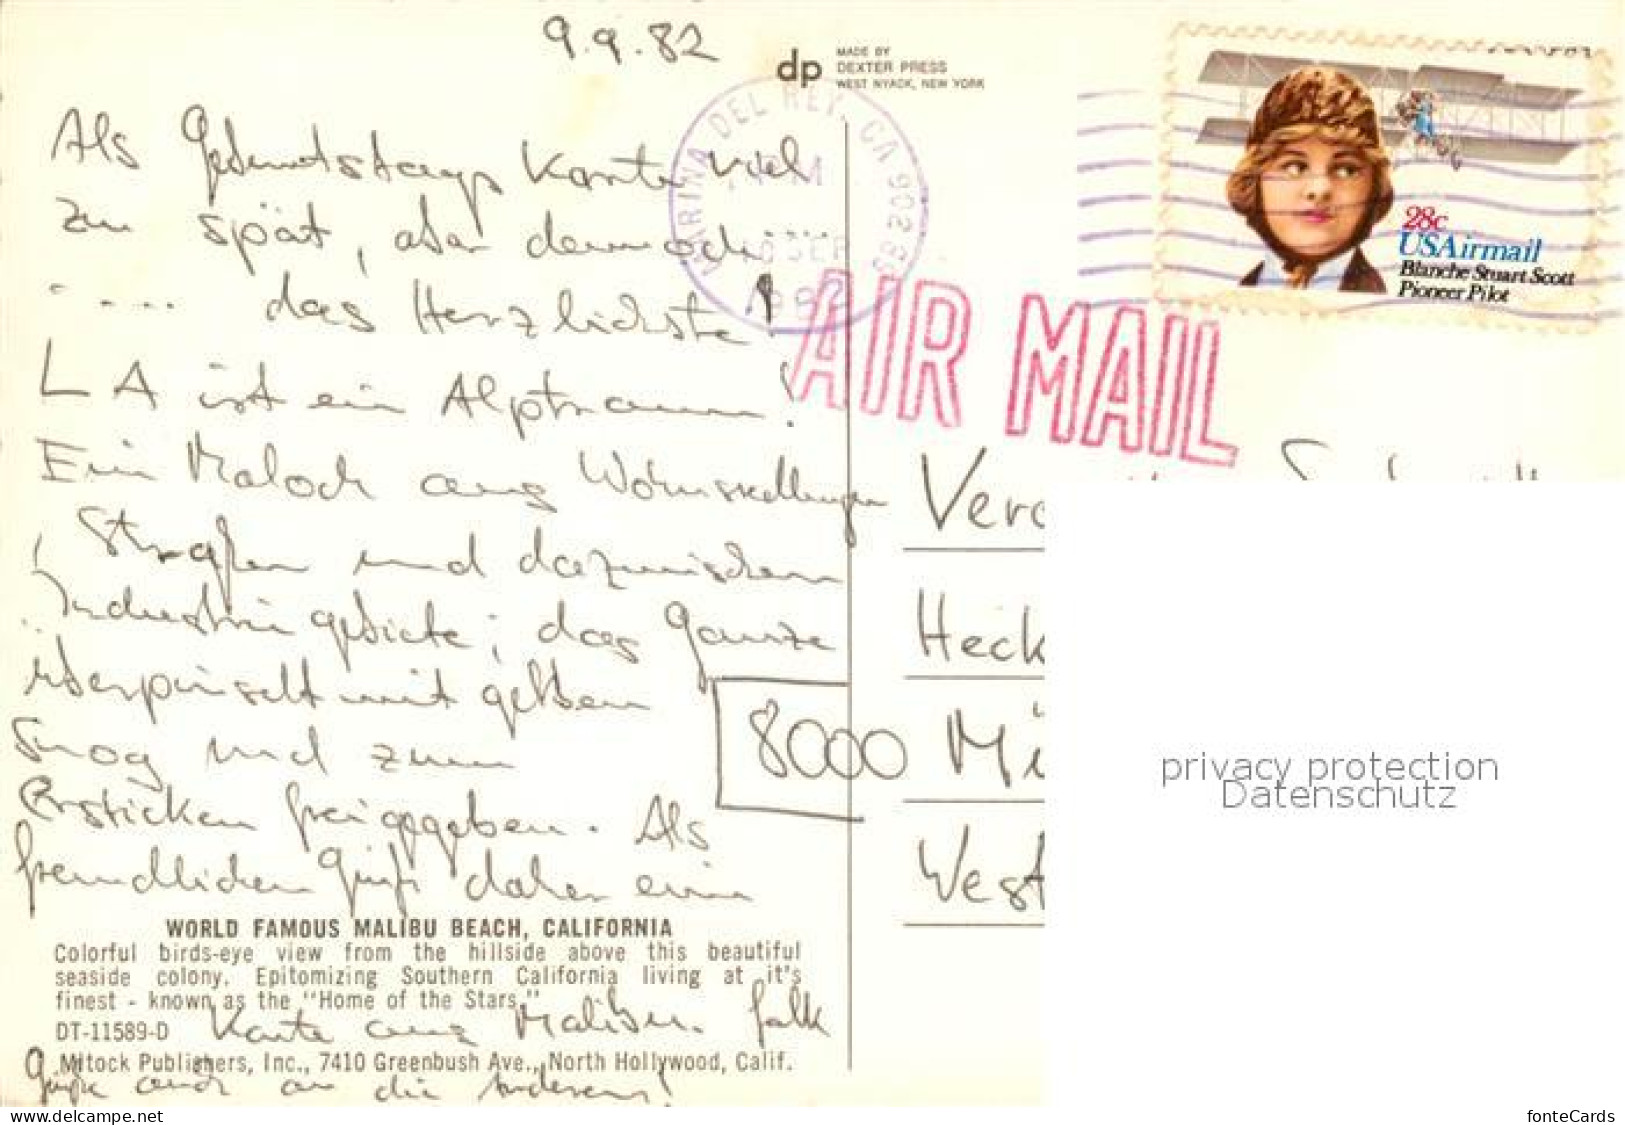 9.9.82
dp
MADE BY
DEXTER PRESS
WEST NYACK, NEW YORK
MARINA DEL REY, CA 902
SEP
1982
28c
USAirmail
Blanche Stuart Scott
Pioneer Pilot
AIR MAIL
Als Geburtstagskarte viel
zu spät, aber dennoch ....
.... das Herzlichste!
LA ist ein Alptraum!
Ein Moloch aus Wohnsiedlungen
, Straßen und dazwischen
Industriegebiete; das Ganze
überpinselt mit gelbem
Smog und zum
Ersticken freigegeben. Als
freundlichen Gruß daher eine
Karte aus Malibu. Falk
Grüße auch an die Anderen!
WORLD FAMOUS MALIBU BEACH, CALIFORNIA
Colorful birds-eye view from the hillside above this beautiful
seaside colony. Epitomizing Southern California living at it's
finest - known as the "Home of the Stars."
DT-11589-D
Mitock Publishers, Inc., 7410 Greenbush Ave., North Hollywood, Calif.
Vero
Heck
8000 Mü
West
privacy protection
Datenschutz
www.ansichtskarten-center.de
fonteCards